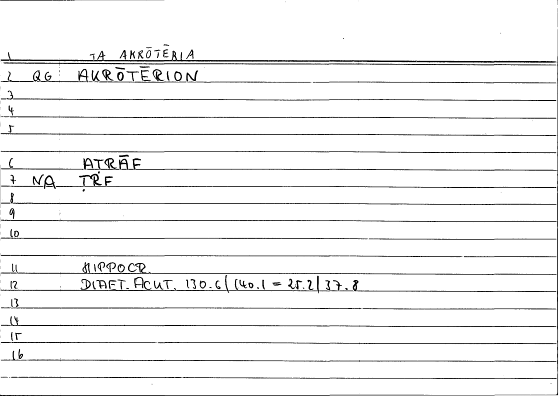 1 TA AKRŌTĒRIA
2 QG AKRŌTĒRION
3
4
5
6 AṬRĀF
7 NA ṬRF
8
9
10
11 HIPPOCR.
12 DIAET. ACUT. 130.6 / 140.1 = 25.2 / 37.8
13
14
15
16